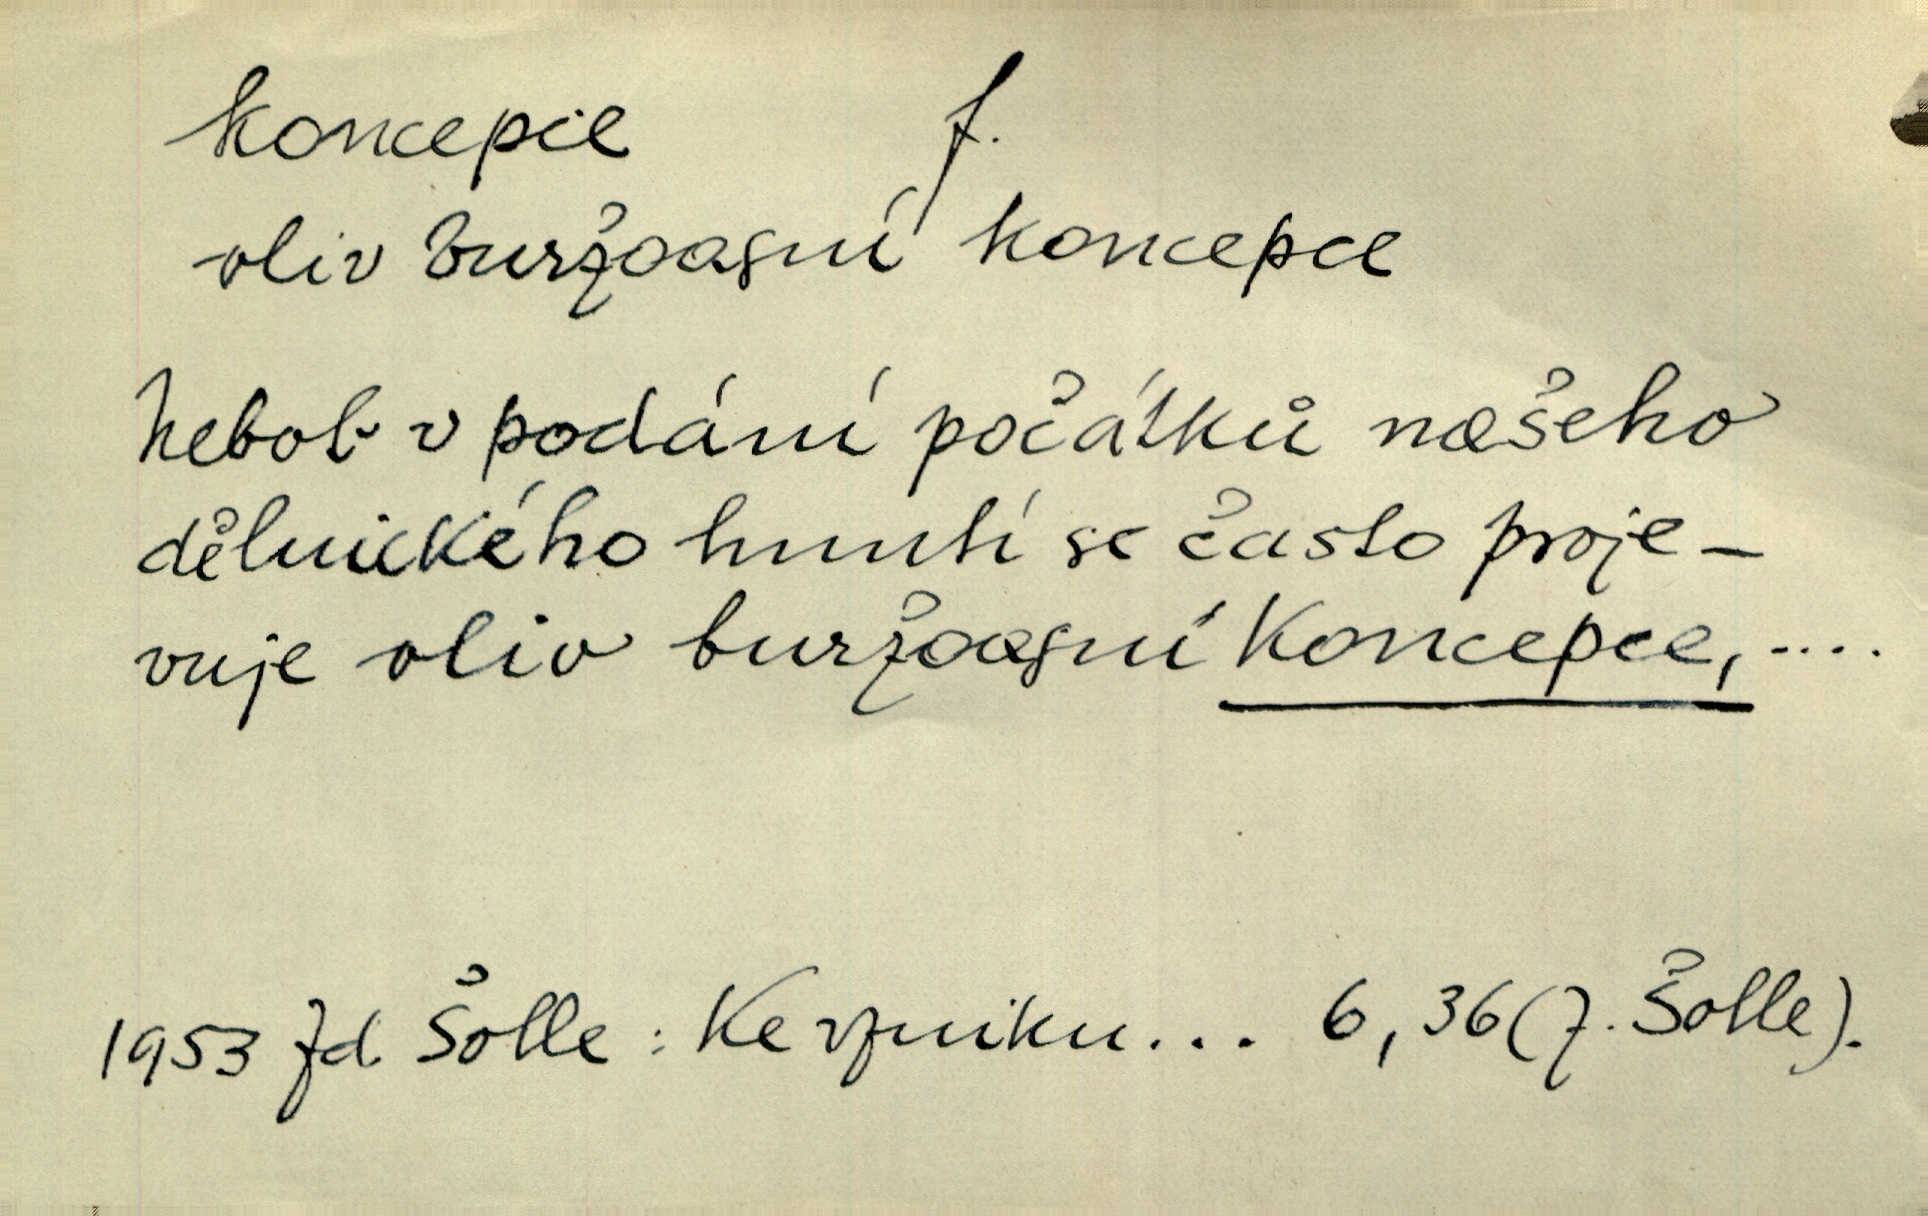 koncepce f.
vliv buržoasní koncepce
Neboť v podání počátků našeho
dělnického hnutí se často proje-
vuje vliv buržoasní koncepce, ....
1953 Zd. Šolle: Ke vzniku... 6, 36 (Z. Šolle).